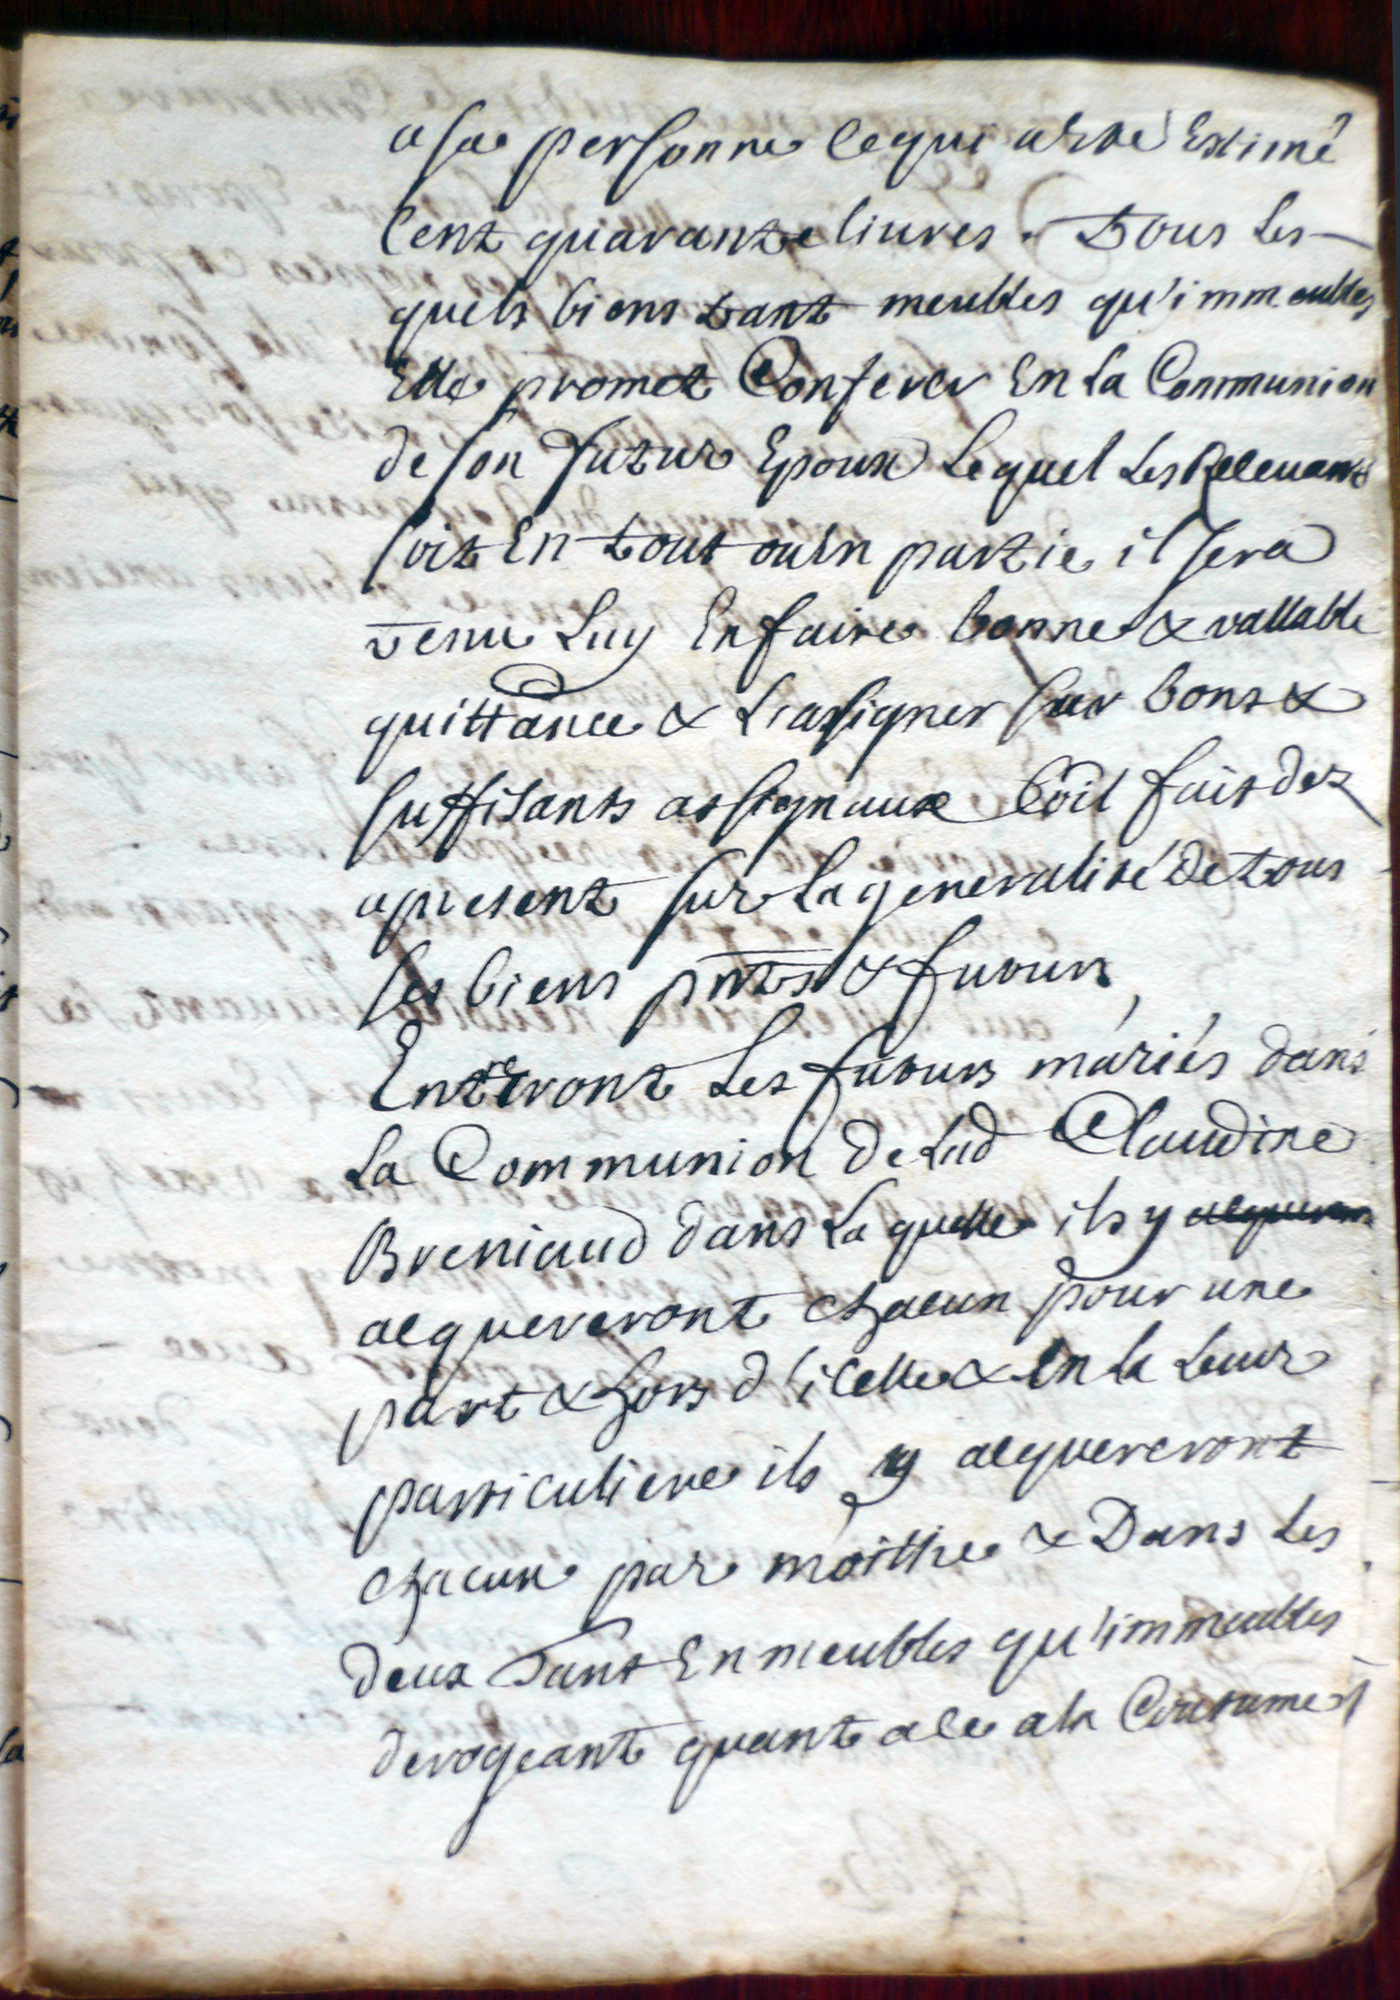 a sa personne ce qui a esté Estimé
Cent quarante livres. Tous les
quels biens tant meubles qu'immeubles
Elle promet Conferer En la Communion
de son futur Epoux lequel les Recevant
soit En tout ou En partie il sera
tenu Luy En faire bonne & vallable
quittance & L'assigner sur bons &
suffisants assignaux Coe il fait dez
apresent sur la generalité de tous
ses biens pnts & futurs,
Entreront Les futurs mariés dans
La Communion de Lad Claudine
Breniaud dans La quelle ils y
acquereront chacun pour une
part & hors d'icelle & En la Leur
particuliere ils y acquereront
chacun par moithie & Dans les
deux Tant En meubles qu'immeubles
derogeant quant a ce a la Coutume